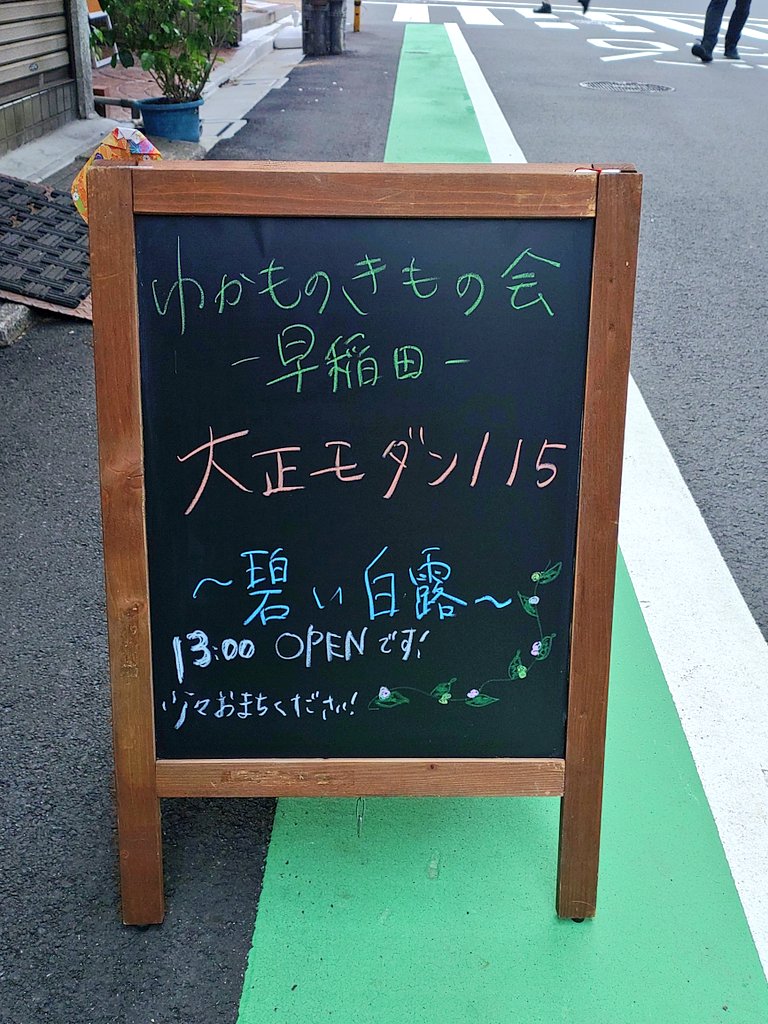 ゆかものきもの会
-早稲田-
大正モダン115
～碧い白露～
13:00 OPENです!
少々おまちください!